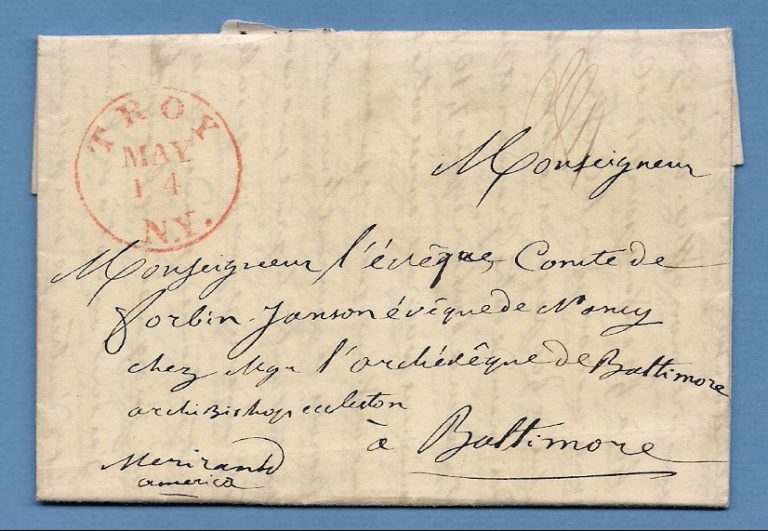 TROY
MAY
14
N.Y.
Monseigneur
Monseigneur l'évêque, Comte de
forbin-Janson évêque de Nancy
chez Mgr l'archévêque de Baltimore
archiBishop eccleston
à Baltimore
Merirand
america